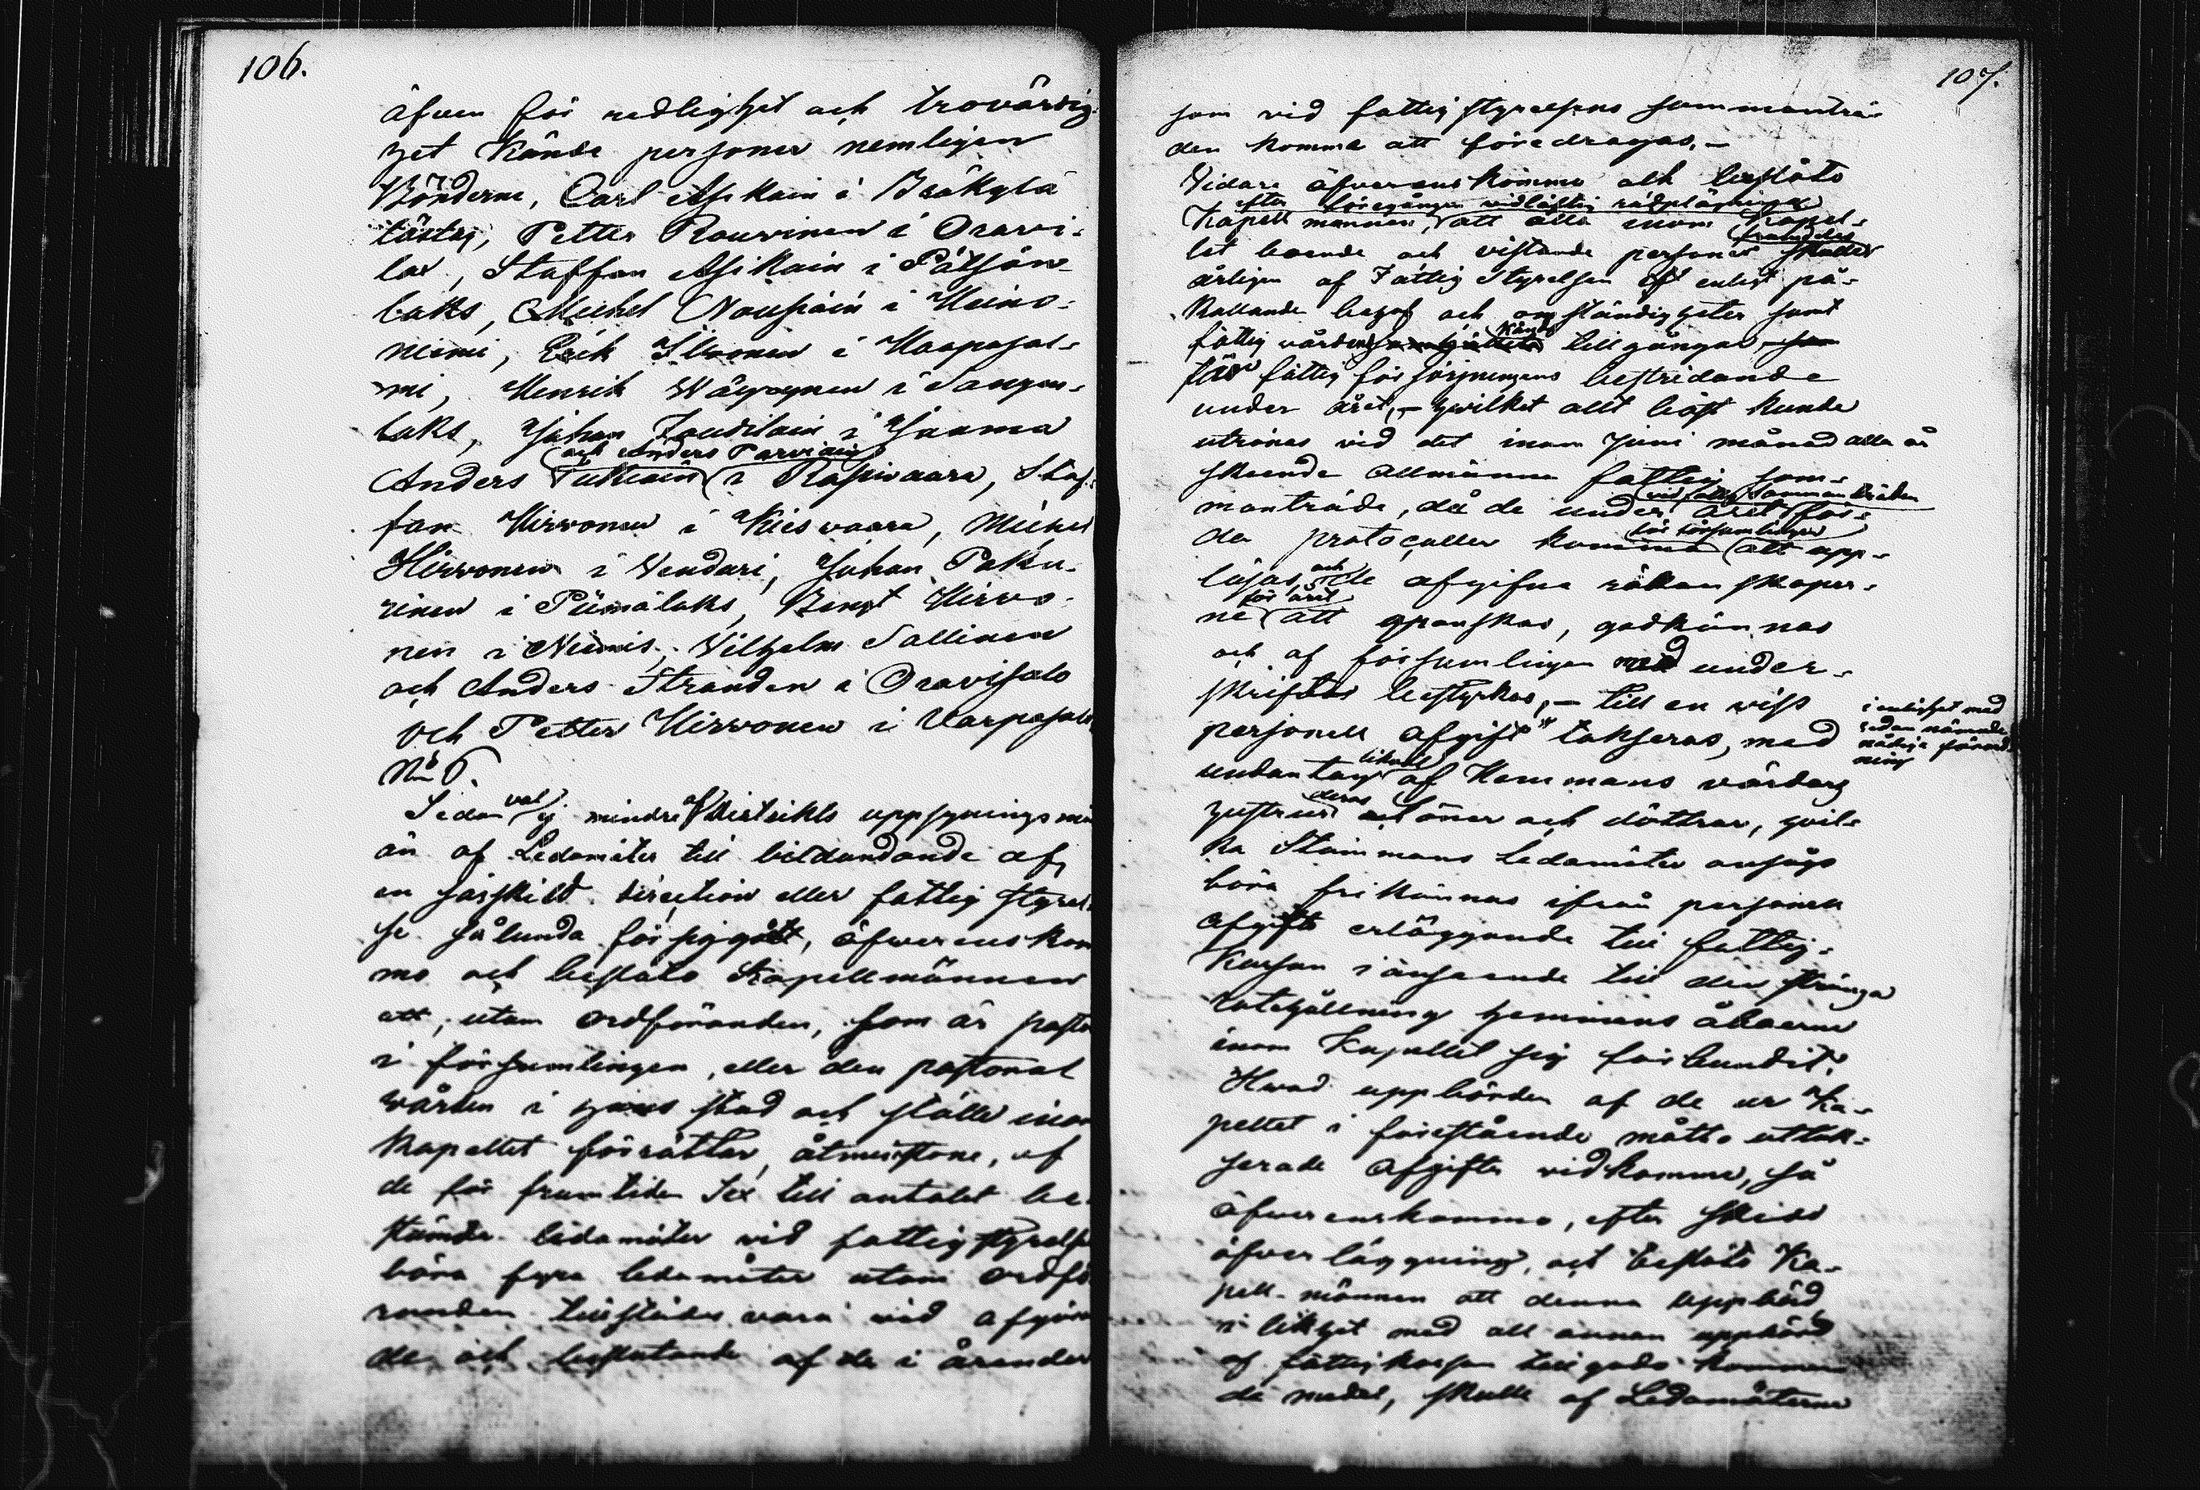 106.
äfven för redlighet och trovärdig-
het kände personer nemligen
Bönderne, Carl Asikain i Bräkylä
Petter Rouvinen i Oravi-
lax, Staffan Asikain i Pötsön-
laks, Michel Nousiain i Heino-
niemi, Erik Ikonen i Haapasal-
mi, Henrik Väyrynen i Sangen-
laks, Johan i Jaama
och Anders Parviain
Anders Tukiain i Rasivaara, Staf-
fan Hirvonen i Kiesvaara, Michel
Hirvonen i Vendari, Johan Paku-
rinen i Piimälaks, Bengt Hirvo-
nen i Niemis, Vilhelm Sallinen
och Anders Stranden i Oravisalo
och Petter Hirvonen i Varpasalo
No 6.
val af
Sedan ej mindre Distrikts uppsynings mä
än af Ledamöter till bildandande af
en särskild direction eller fattig styrel-
se sålunda försiggått, öfverenskom
mo och beslöto Kapellmännen
att, utom ordföranden, som är pasto
i församlingen, eller den pastoral
vården i hans stad och ställe inom
Kapellet förrättar, åtminstone, af
de för framtiden Sex till antalet be-
stämde ledamöter vid fattig styrelse
böra fyra ledamöter utom ordfö
randen tillstädes vara vid afgöran
de och beslutande af de i ärender
107.
som vid fattig styrelsens sammanträ-
den komma att föredragas.-
Vidare öfverenskommo och beslöto
efter föregången vidlöftig rådplägningar
Kapell männen, att alla inom Kapel-
let boende och vistande personer skulle
årligen af Fattig Styrelsen enligt på-
kallande behof och omständigheter samt
kända
fattig vårdens tillgångar
för fattig försörjningens bestridande
under året,- hvilket allt bäst kunde
utrönas vid det inom Juni månad alla år
skeende allmänna fattig sam-
vid fattig sammanträden
manträde, då de under året för-
för församlingen
da protocoller komma att upp-
och
läsas, de afgifna räkenskaper-
för året
ne att granskas, godkännas
och af församlingen med under-
skrifter bestyrkas,- till en viss
personell afgift * takseras, med
i enlighet med
sedan nämnde
nådige förord-
ning
likväl
undantag af Hemmans värdars
deras
hustrur söner och döttrar, hvil-
ka Stämmans Ledamöter ansågs
böra frikännas ifrån personell
afgifts erläggande till fattig-
Kassan i anseende till den stränga
rotehållning hemmans åboerne
inom Kapellet sig förbundit.
Hvad uppbörden af de ur Ka-
pellet i förestående måtto uttak-
serade afgifter vidkomme, så
öfverenskommo, efter skedd
öfverläggning, och beslöto Ka-
pell-männen att denna uppbörd
i likhet med all annan uppbörd
af fattigkassan tillgodo komman
de medel, skulle af Ledamöterne